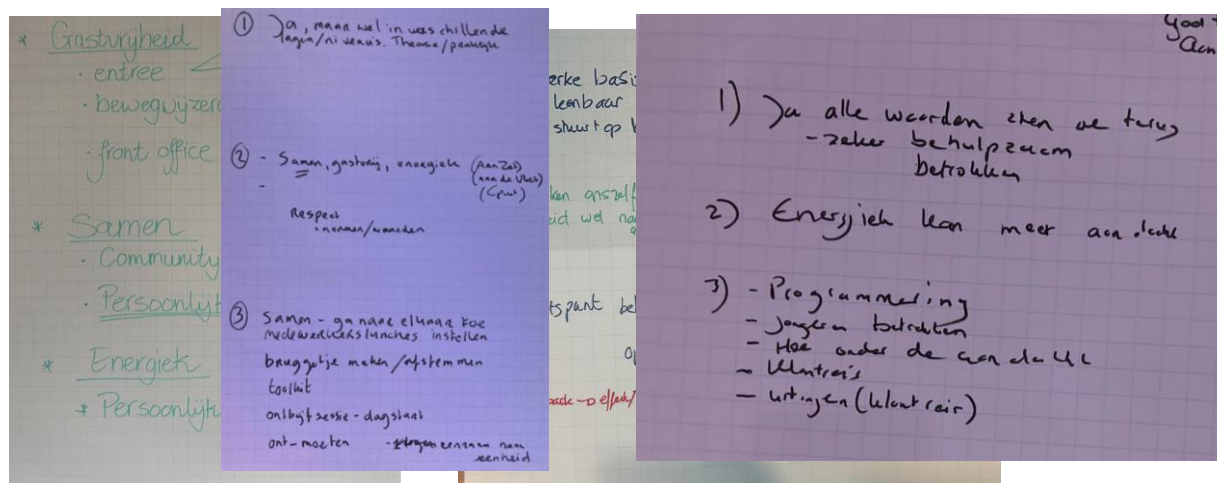 * Gastvrijheid
· entree
· bewegwijzer
· front office
* Samen
· Community
· Persoonlijk
* Energiek
* Persoonlijk
① Ja, maar wel in verschillende
lagen/niveau's. Theorie/praktijk
② - Samen, gastvrij, energiek (Aan Zet)
(aan de Vliet)
(Cpunt)
-
Respect
· normen/waarden
③ Samen - ga naar elkaar toe
medewerkerslunches instellen
bruggetje maken/afstemmen
toolkit
ontbijtsessie - dagstart
ont-moeten - eenheid
erke basi
leenbaar
stuurt op
ken onszelf
eid wel na
tspunt be
op
back -> effect/
Goot
aan
1) Ja alle waarden zien we terug
- zeker behulpzaam
betrokken
2) Energiek kan meer aandacht
3) - Programmering
- jongeren betrekken
- Hoe onder de aandacht
- klantreis
- uitingen (klantreis)